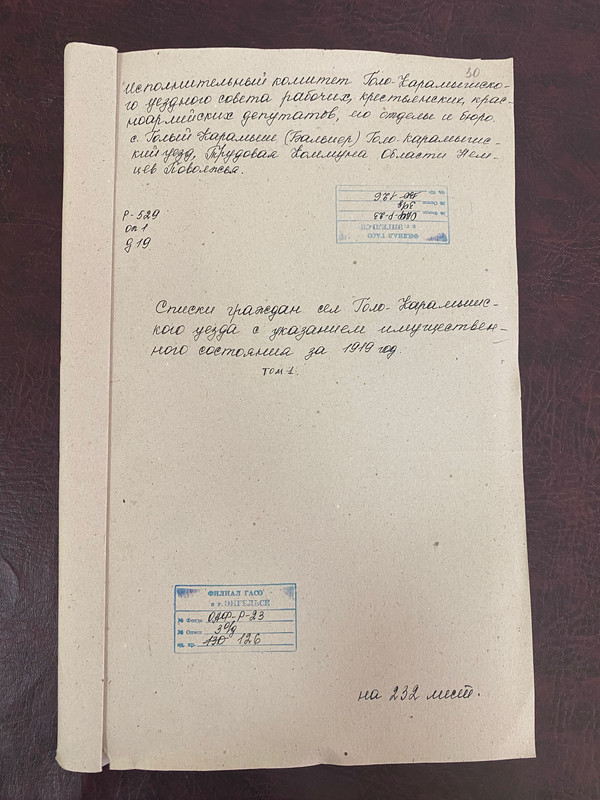 30
Исполнительный комитет Голо-Карамышско-
го уездного совета рабочих, крестьянских, крас-
ноармийских депутатов, его отделы и бюро.
с. Голый Карамыш (Бальцер) Голо-Карамышс-
кий уезд, Трудовая Коммуна Области Нем-
цев Поволжья.
ФИЛИАЛ ГАСО
в г. ЭНГЕЛЬСЕ
№ Фонда ОДФ-Р-23
№ Описи 3 о/д
ед. хр. 130 126
Р-529
оп 1
д 19
Списки граждан сел Голо-Карамышс-
кого уезда с указанием имуществен-
ного состояния за 1919 год.
том 1.
ФИЛИАЛ ГАСО
в г. ЭНГЕЛЬСЕ
№ Фонда ОДФ-Р-23
№ Описи 3 о/д
ед. хр. 130 126
на 232 лист.